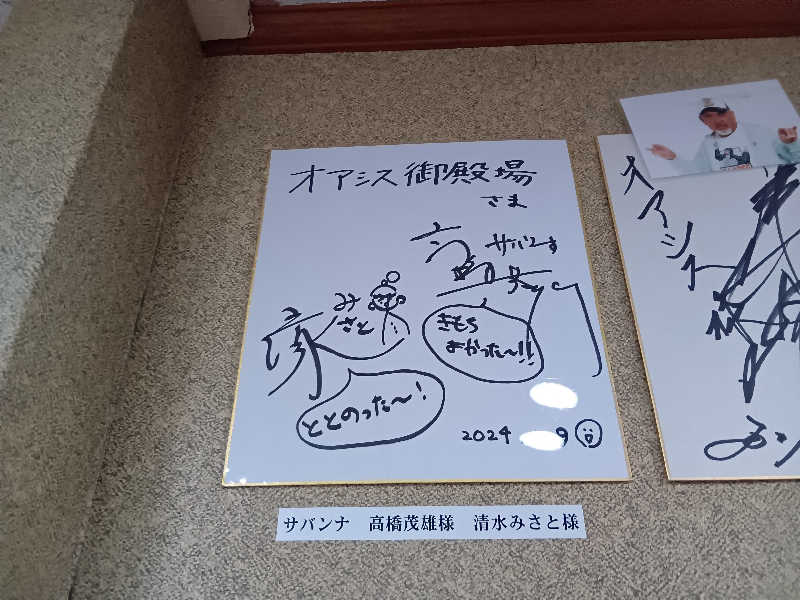 オアシス御殿場
さま
サバンナ
みさと
きもち
よかった〜!!
ととのった〜!
2024 9
サバンナ 高橋茂雄様 清水みさと様
オアシス